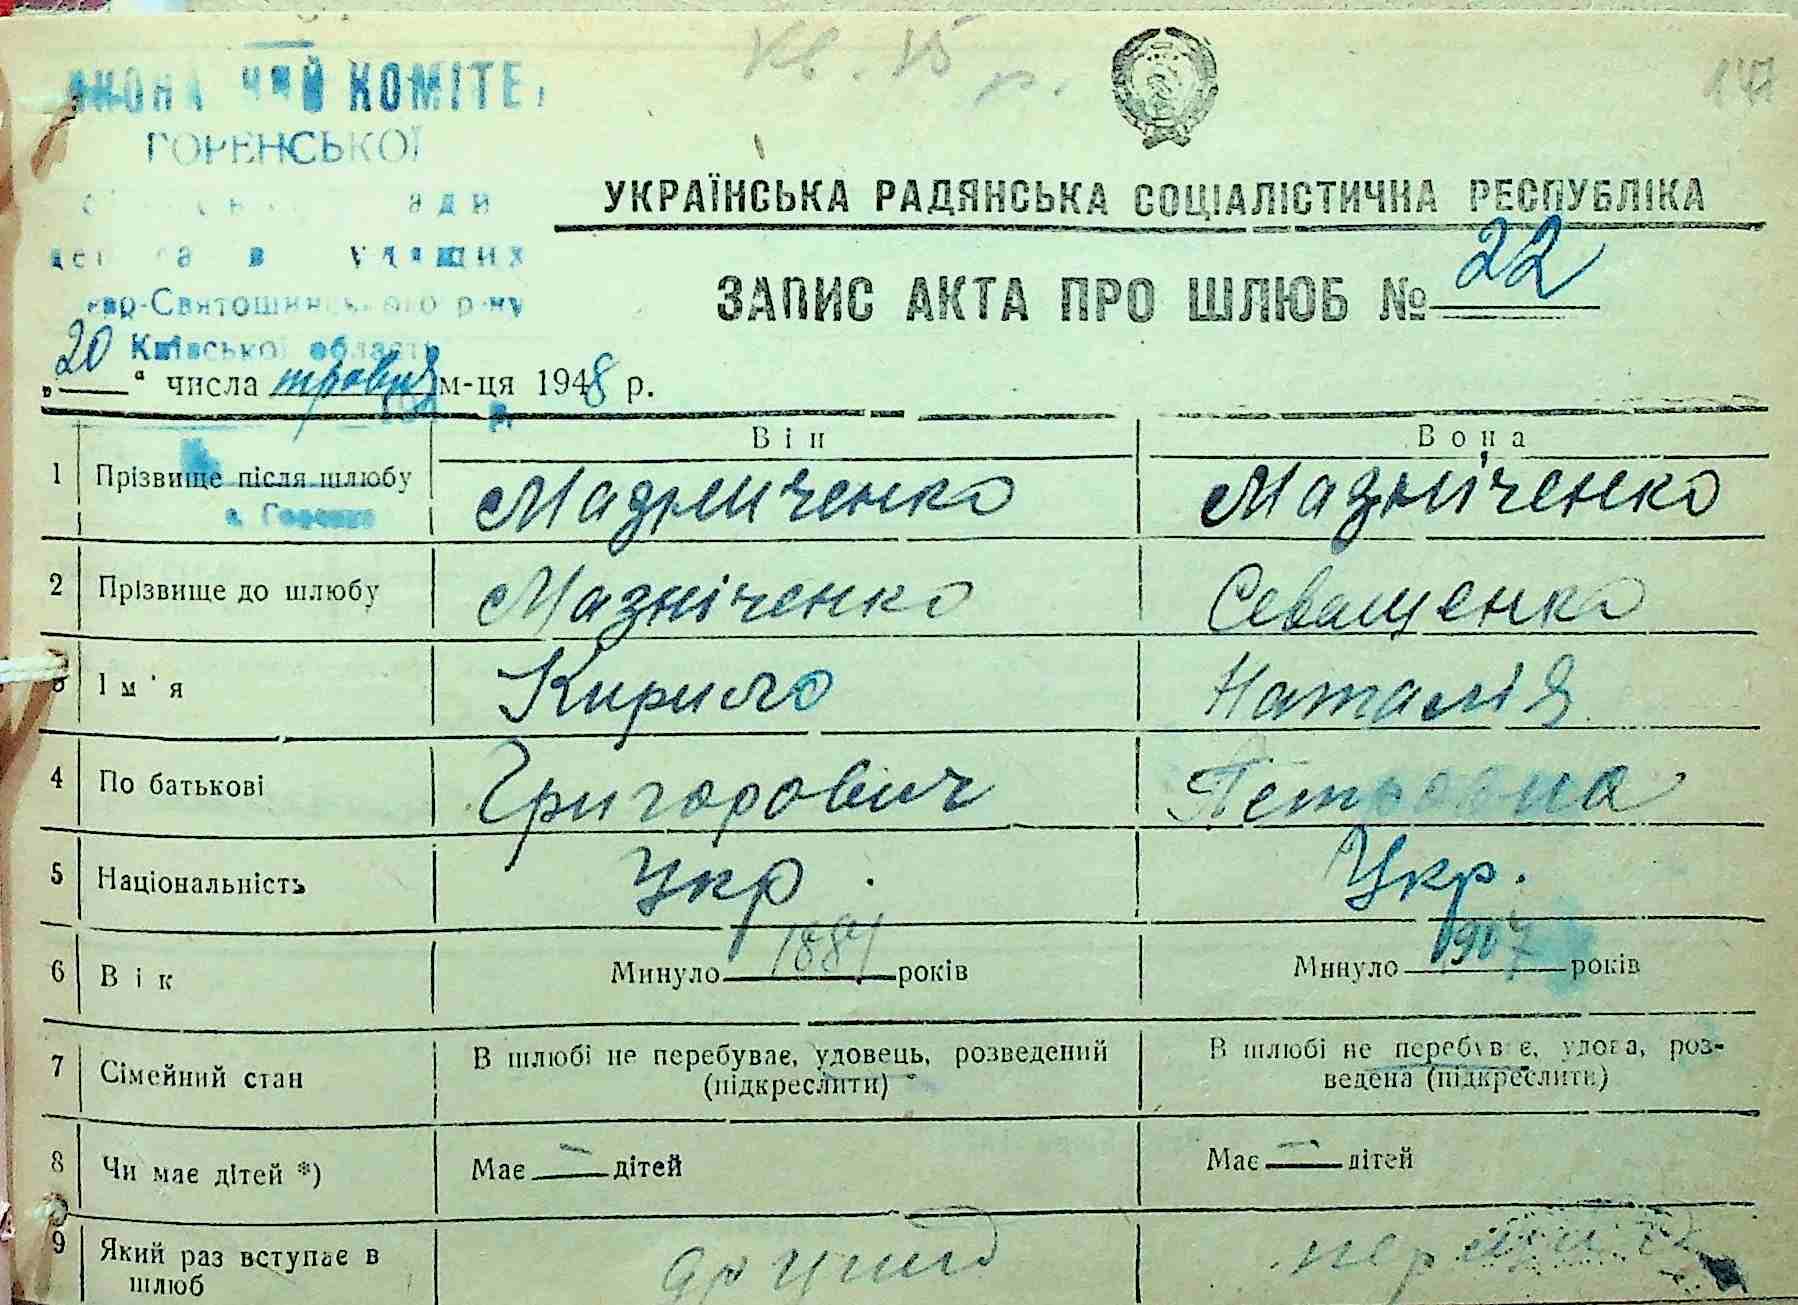 КОМІТЕ
ГОРЕНСЬКОЇ
-Святошинського р-ну
Київської області
147
УКРАЇНСЬКА РАДЯНСЬКА СОЦІАЛІСТИЧНА РЕСПУБЛІКА
ЗАПИС АКТА ПРО ШЛЮБ № 22
„20“ числа травня м-ця 1948 р.
Він Вона
1 Прізвище після шлюбу Мазниченко Мазніченко
с. Горенка
2 Прізвище до шлюбу Мазніченко Сeващенко
3 Ім'я Кирило Наталія
4 По батькові Григорович Петровна
5 Національність Укр. Укр.
6 Вік Минуло 1884 років Минуло 1907 років
7 Сімейний стан В шлюбі не перебуває, удовець, розведений (підкреслити) В шлюбі не перебуває, удова, роз-
ведена (підкреслити)
8 Чи має дітей *) Має — дітей Має — дітей
9 Який раз вступає в
шлюб другий